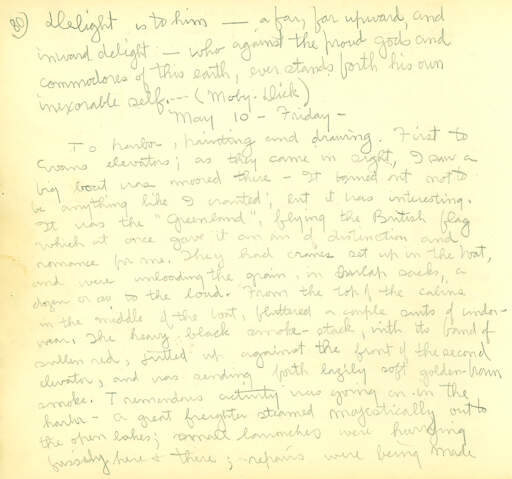 39) Delight is to him — a far, far upward, and
inward delight — who against the proud gods and
commodores of this earth, ever stands forth his own
inexorable self.--- (Moby-Dick)
May 10 - Friday -
To harbor, painting and drawing. First to
Evans elevators; as they came in sight, I saw a
big boat was moored there - It turned out not to
be anything like I wanted, but it was interesting.
It was the "Greenland", flying the British flag
which at once gave it an air of distinction and
romance for me. They had cranes set up in the boat,
and were unloading the grain, in burlap sacks, a
dozen or so to the load. From the top of the cabins
in the middle of the boat, fluttered a couple suits of under-
wear. The heavy black smoke-stack, with its band of
sullen red, jutted up against the front of the second
elevator, and was sending forth lazily soft golden-brown
smoke. Tremendous activity was going on in the
harbor - a great freighter steamed majestically out to
the open lakes; small launches were hurrying
fussily here & there; - repairs were being made